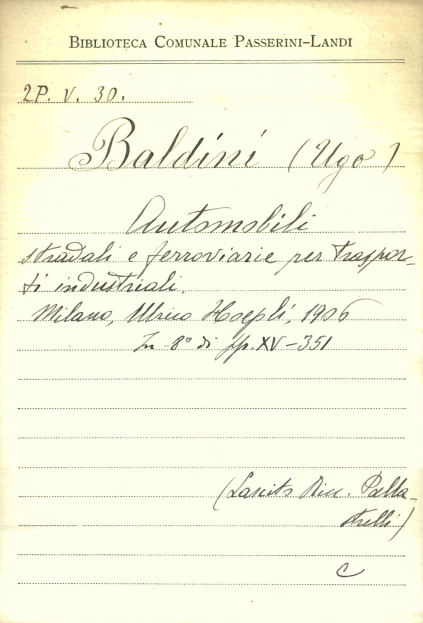 BIBLIOTECA COMUNALE PASSERINI-LANDI
2P. V. 30.
Baldini (Ugo)
Automobili
stradali e ferroviarie per traspor-
ti industriali.
Milano, Ulrico Hoepli, 1906
In 8° di pp. XV-351
(Lascito Ricc. Palla-
strelli)
C